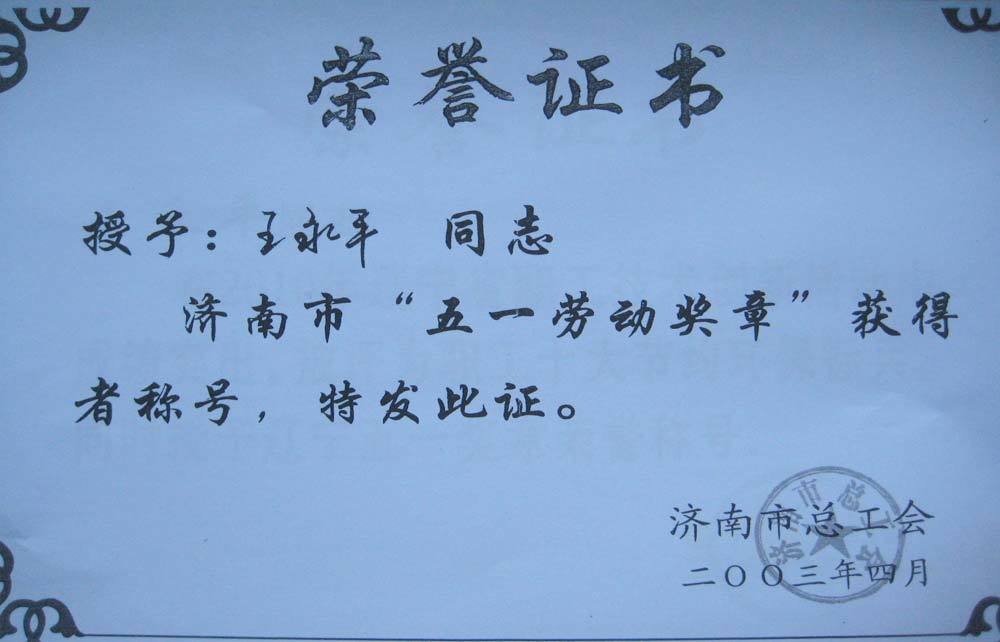 荣誉证书
授予：王永平 同志
济南市“五一劳动奖章”获得
者称号，特发此证。
济南市总工会
二〇〇三年四月
济南市总工会